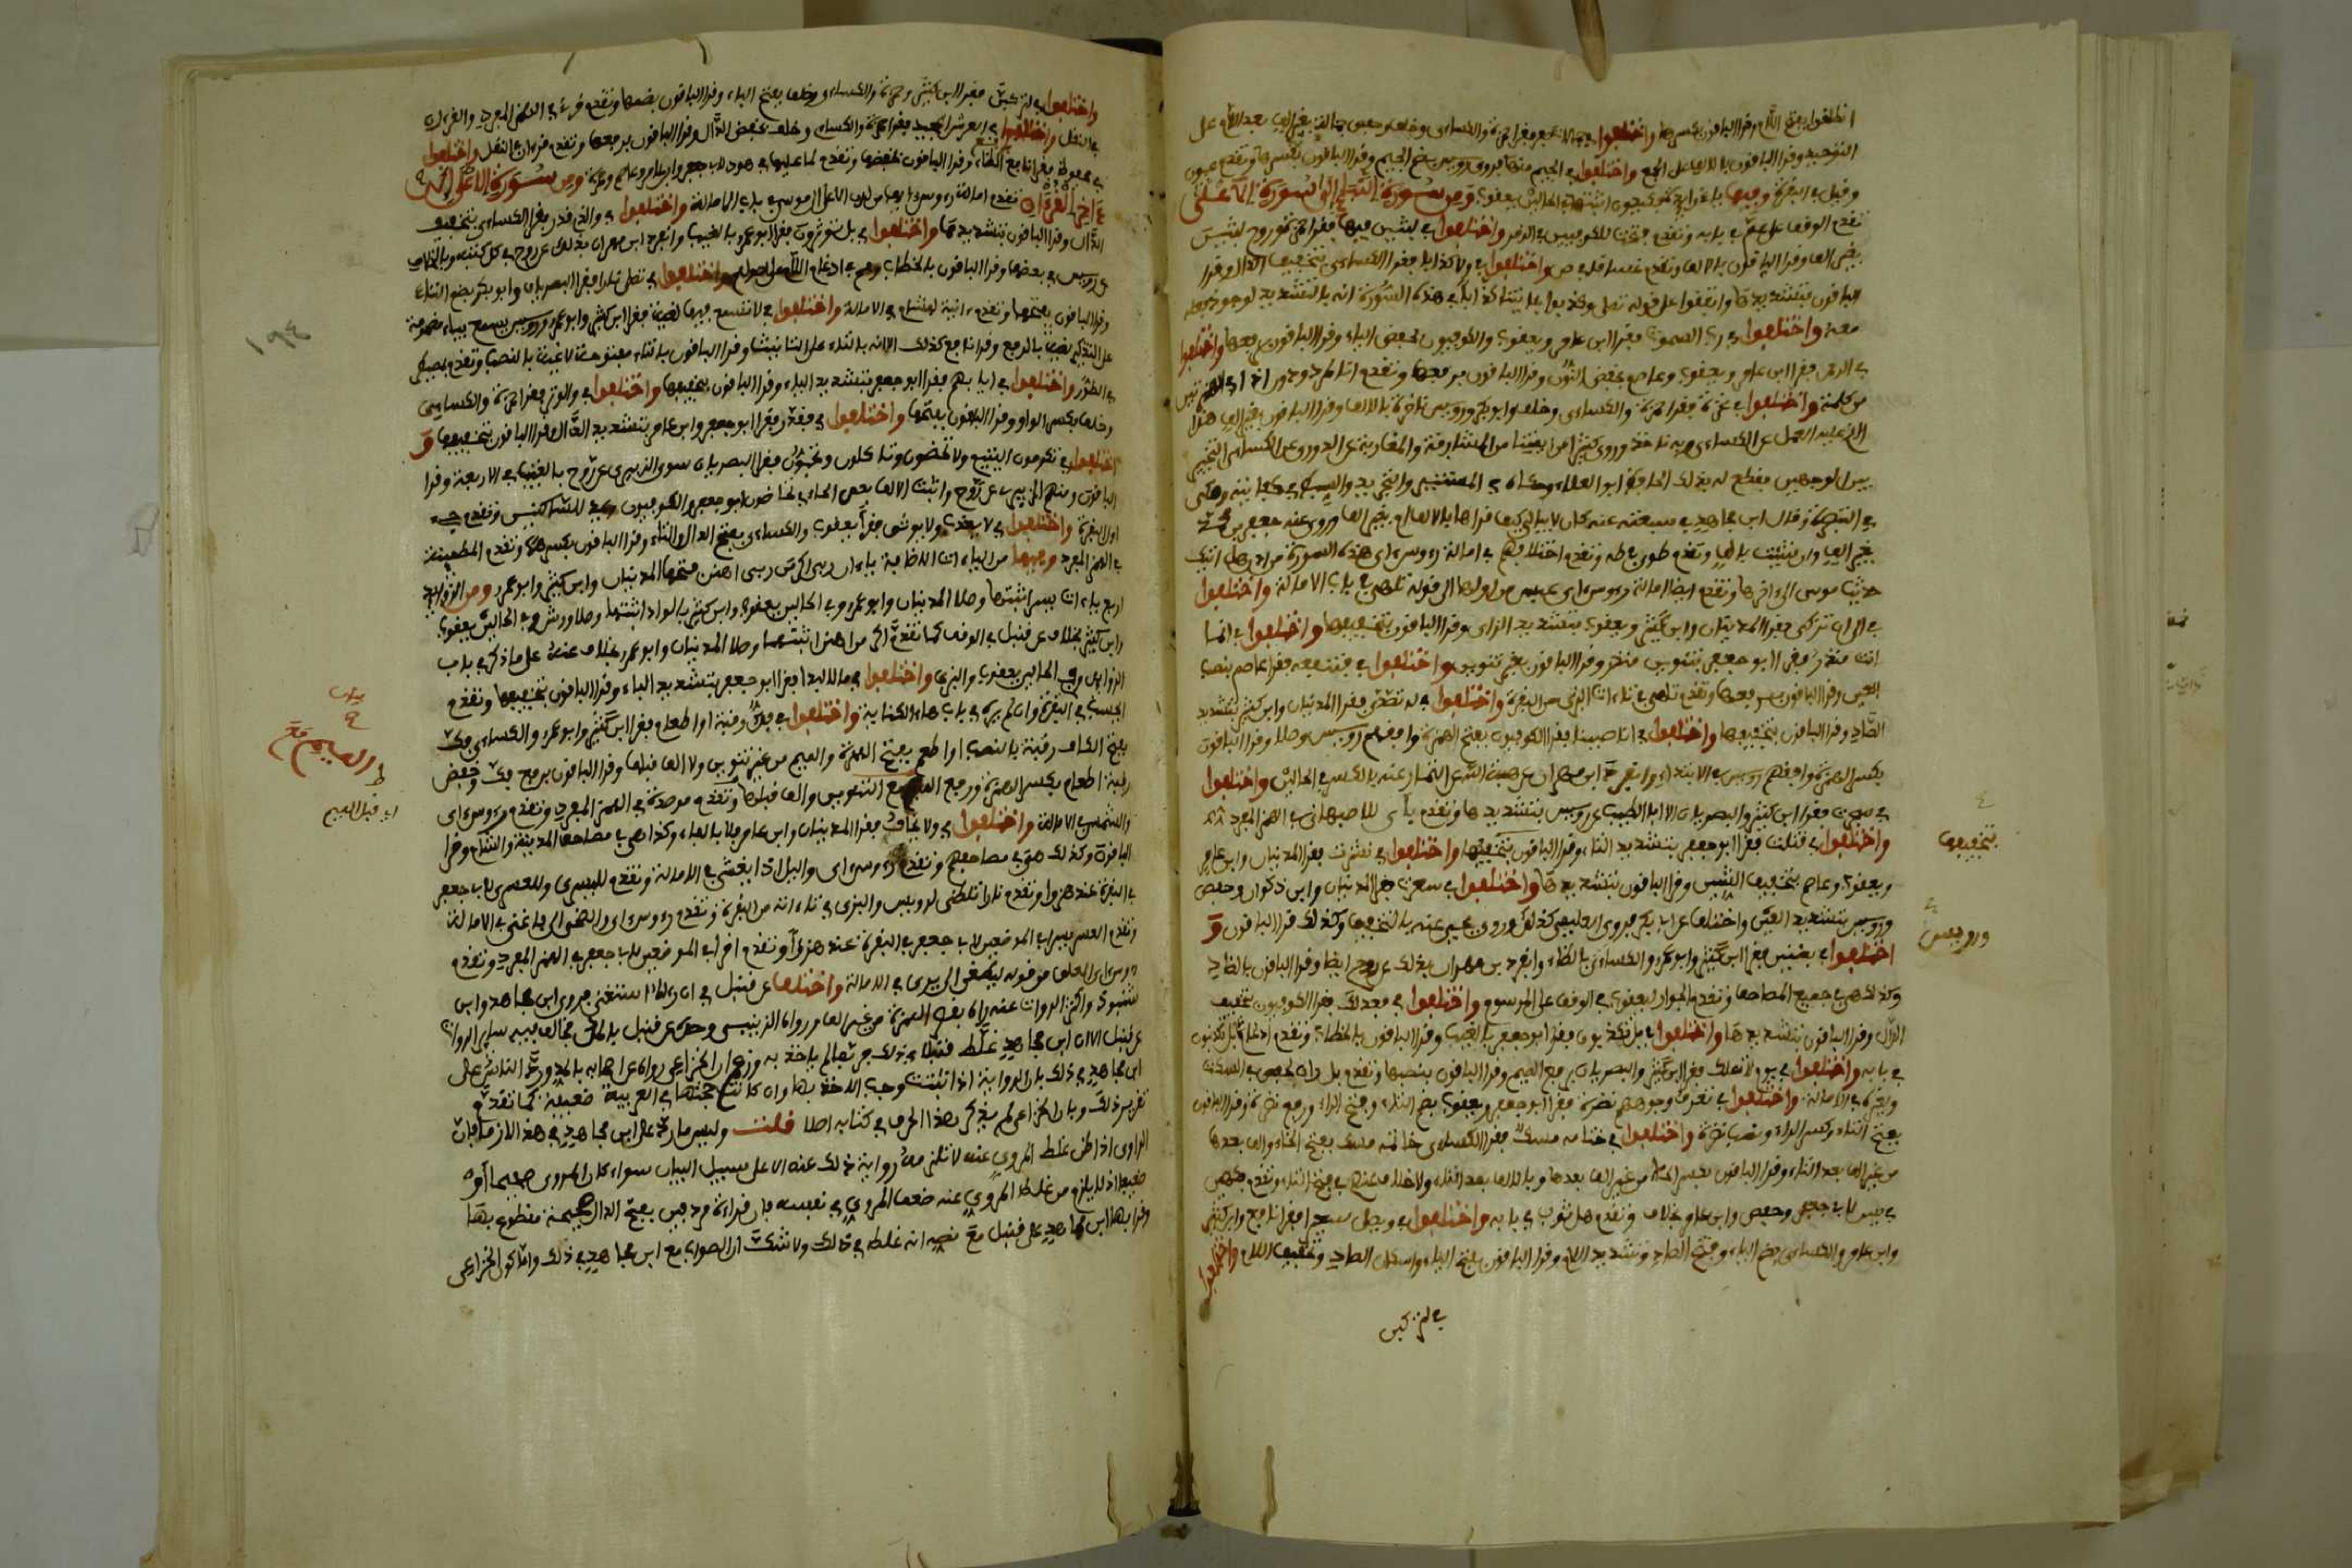 انطلقوا بفتح اللام وقرا الباقون بكسرها واختلفوا في جمالات صفر فقرا حمزة والكساءي وخلف وحفص جمالة بغير الف بعد اللام على
التوحيد وقرا الباقون بالالف على الجمع واختلفوا في الجيم منها فروى رويس بضم الجيم وقرا الباقون بكسرها وتقدم عيون
وقيل في البقرة وفيها ياء زايدة فكيدون اثبتها في الحالين يعقوب ومن سورة النبا الى سورة الاعلى
تقدم الوقف على عم في بابه وتقدم فتحت للكوفيين في الزمر واختلفوا في لبثين فيها فقرا حمزة وروح لبثين
بغير الف وقرا الباقون بالالف وتقدم غساقا في ص واختلفوا في ولا كذابا فقرا الكساءي بتخفيف الذال وقرا
الباقون بتشديدها واتفقوا على قوله تعلى وكذبوا بءايتنا كذابا في هذه السورة انه بالتشديد لوجود فعله
معه واختلفوا في رب السموت فقرا ابن عامر ويعقوب والكوفيون بخفض الباء وقرا الباقون برفعها واختلفوا
في الرحمن فقرا ابن عامر ويعقوب وعاصم بخفض النون وقرا الباقون برفعها وتقدم اءنا لمردودون اءذا في الهمزتين
من كلمة واختلفوا في نخرة فقرا حمزة والكساءي وخلف وابو بكر ورويس ناخرة بالالف وقرا الباقون بغير الف هذا
الذي عليه العمل عن الكساءي وبه ناخذ وروى كثير من ايمتنا من المشارقة والمغاربة عن الدوري عن الكساءي التخيير
بين الوجهين فقطع له بذلك الحافظ ابو العلاء وحكاه في المستنير والتجريد والسبط في كفايته ومكي
في التبصرة وقال ابن مجاهد في سبعته عنه كان لا يبالي كيف قراها بالالف ام بغير الف وروى عنه جعفر بن محمد
بغير الف وان شئت بالف وتقدم طوى في طه وتقدم اختلافهم في امالة رءوس ءاي هذه السورة من لدن هل اتيك
حديث موسى الى ءاخرها وتقدم ايضا امالة رءوس ءاي عبس من اولها الى قوله تلهى في باب الامالة واختلفوا
في الى ان تزكى فقرا المدنيان وابن كثير ويعقوب بتشديد الزاي وقرا الباقون بتخفيفها واختلفوا في انما
انت منذر فقرا ابو جعفر بتنوين منذر وقرا الباقون بغير تنوين واختلفوا في فتنفعه فقرا عاصم بنصب
العين وقرا الباقون برفعها وتقدم تلهى في تاءات البزي من البقرة واختلفوا في له تصدى فقرا المدنيان وابن كثير بتشديد
الصاد وقرا الباقون بتخفيفها واختلفوا في انا صببنا فقرا الكوفيون بفتح الهمزة وافقهم رويس وصلا وقرا الباقون
بكسر الهمزة وافقهم رويس في الابتداء وانفرد ابن مهران عن هبة الله عن التمار عنه بالكسر في الحالين واختلفوا
في سجرت فقرا ابن كثير والبصريان الا ابا الطيب عن رويس بتشديدها وتقدم باي للاصبهاني في الهمز المفرد
واختلفوا في قتلت فقرا ابو جعفر بتشديد التاء وقرا الباقون بتخفيفها واختلفوا في نشرت فقرا المدنيان وابن عامر
ويعقوب وعاصم بتخفيف الشين وقرا الباقون بتشديدها واختلفوا في سعرت فقرا المدنيان وابن ذكوان وحفص
ورويس بتشديد العين واختلف عن ابي بكر فروى العليمي كذلك وروى يحيى عنه بالتخفيف وكذلك قرا الباقون و
اختلفوا في بضنين فقرا ابن كثير وابو عمرو والكساءي بالظاء وانفرد بن مهران بذلك عن روح ايضا وقرا الباقون بالضاد
وكذا هي في جميع المصاحف وتقدم الجوار ليعقوب في الوقف على المرسوم واختلفوا في فعدلك فقرا الكوفيون بتخفيف
الدال وقرا الباقون بتشديدها واختلفوا في بل تكذبون فقرا ابو جعفر بالغيب وقرا الباقون بالخطاب وتقدم ادغام بل تكذبون
في بابه واختلفوا في يوم لا تملك فقرا ابن كثير والبصريان برفع الميم وقرا الباقون بنصبها وتقدم بل ران لحفص في السكت
وغيره في الامالة واختلفوا في تعرف في وجوههم نضرة فقرا ابو جعفر ويعقوب بضم التاء وفتح الراء ورفع نضرة وقرا الباقون
بفتح التاء وكسر الراء ونصب نضرة واختلفوا في ختامه مسك فقرا الكساءي خاتمه مسك بفتح الخاء والف بعدها
من غير الف بعد التاء وقرا الباقون بكسر الخاء من غير الف بعدها وبالالف بعد التاء ولا خلاف عنهم في فتح التاء وتقدم فكهين
في يس لابي جعفر وحفص وابن عامر بخلاف وتقدم هل ثوب في بابه واختلفوا في ويصلى سعيرا فقرا نافع وابن كثير
وابن عامر والكساءي بضم الياء وفتح الصاد وتشديد اللام وقرا الباقون بفتح الياء واسكان الصاد وتخفيف اللام واختلفوا
في لتركبن
بتخفيفها
ورويس
واختلفوا في لتركبن فقرا ابن كثير وحمزة والكساءي وخلف بفتح الباء وقرا الباقون بضمها وتقدم قرئ في الهمز المفرد والقرءان
في النقل واختلفوا في العرش المجيد فقرا حمزة والكساءي وخلف بخفض الدال وقرا الباقون برفعها وتقدم قرءان في النقل واختلفوا
في محفوظ فقرا نافع برفع الظاء وقرا الباقون بخفضها وتقدم لما عليها في هود لابي جعفر وابن عامر وعاصم وحمزة ومن سورة الاعلى الى
ءاخر القرءان تقدم امالة رءوس ءايها من لدن الاعلى الى موسى في باب الامالة واختلفوا في والذي قدر فقرا الكساءي بتخفيف
الدال وقرا الباقون بتشديدها واختلفوا في بل توثرون فقرا ابو عمرو بالغيب وانفرد ابن مهران بذلك عن روح في كل كتبه وبالخلاف
عن رويس في بعضها وقرا الباقون بالخطاب وهم في ادغام اللام على اصولهم واختلفوا في تصلى نارا فقرا البصريان وابو بكر بضم التاء
وقرا الباقون بفتحها وتقدم ءانية لهشام في الامالة واختلفوا في لا تسمع فيها لغية فقرا ابن كثير وابو عمرو ورويس يسمع بياء مضمومة
على التذكير لغية بالرفع وقرا نافع كذلك الا انه بالتاء على التانيث وقرا الباقون بالتاء مفتوحة لاغية بالنصب وتقدم بمصيطر
في الطور واختلفوا في ايابهم فقرا ابو جعفر بتشديد الياء وقرا الباقون بتخفيفها واختلفوا في والوتر فقرا حمزة والكساءي
وخلف بكسر الواو وقرا الباقون بفتحها واختلفوا في فقدر فقرا ابو جعفر وابن عامر بتشديد الدال وقرا الباقون بتخفيفها و
اختلفوا في تكرمون اليتيم ولا تحضون وتاكلون وتحبون فقرا البصريان سوى الزبيري عن روح بالغيب في الاربعة وقرا
الباقون ومنهم الزبيري عن روح واثبت الالف بعد الحاء في تحاضون ابو جعفر والكوفيون ويمد للساكنين وتقدم جيء
اول البقرة واختلفوا في لا يعذب ولا يوثق فقرا يعقوب والكساءي بفتح الذال والثاء وقرا الباقون بكسرهما وتقدم المطمينة
في الهمز المفرد وفيها من الياءات الاضافة ياءان ربي اكرمن ربي اهنن فتحهما المدنيان وابن كثير وابو عمرو ومن الزوايد
اربع ياءات يسر اثبتها وصلا المدنيان وابو عمرو وفي الحالين يعقوب وابن كثير بالواد اثبتها وصلا ورش وفي الحالين يعقوب
وابن كثير بخلاف عن قنبل في الوقف كما تقدم اكرمن اهنن اثبتهما وصلا المدنيان وابو عمرو بخلاف عنه على ما ذكر في باب
الزوايد وفي الحالين يعقوب والبزي واختلفوا في مالا لبدا فقرا ابو جعفر بتشديد الباء وقرا الباقون بتخفيفها وتقدم
ايحسب في البقرة وان لم يره في باب هاء الكناية واختلفوا في فك رقبة او اطعام فقرا ابن كثير وابو عمرو والكساءي فك
بفتح الكاف رقبة بالنصب او اطعم بفتح الهمزة والميم من غير تنوين ولا الف قبلها وقرا الباقون برفع فك وخفض
رقبة اطعام بكسر الهمزة ورفع الميم مع التنوين والف قبلها وتقدم موصدة في الهمز المفرد وتقدم رءوس ءاي
والشمس في الامالة واختلفوا في ولا يخاف فقرا المدنيان وابن عامر فلا بالفاء وكذا هي في مصاحف المدينة والشام وقرا
الباقون وكذلك هي في مصاحفهم وتقدم رءوس ءاي واليل اذا يغشى في الامالة وتقدم لليسرى وللعسرى لابي جعفر
في البقرة عند هزوا وتقدم نارا تلظى لرويس والبزي في تاءاته من البقرة وتقدم رءوس ءاي والضحى الى فاغنى في الامالة
وتقدم العسر يسرا في الموضعين لابي جعفر في البقرة عند هزوا وتقدم اقرا في الموضعين لابي جعفر في الهمز المفرد وتقدم
رءوس ءاي العلق من قوله ليطغى الى يرى في الامالة واختلف عن قنبل في ان رءاه استغنى فروى ابن مجاهد وابن
شنبوذ واكثر الرواة عنه راه بقصر الهمزة من غير الف ورواه الزينبي وحده عن قنبل بالمد فخالف فيه ساير الرواة
عن قنبل الا ان ابن مجاهد غلط قنبلا في ذلك فربما لم ياخذ به وزعم ان الخزاعي رواه عن اصحابه بالمد ورد الناس على
ابن مجاهد في ذلك بان الرواية اذا ثبتت وجب الاخذ بها وان كانت حجتها في العربية ضعيفة كما تقدم
تقرير ذلك وبان الخزاعي لم يذكر هذا الحرف في كتابه اصلا قلت وليس ما رد به على ابن مجاهد في هذا لازما فان
الراوي اذا ظن غلط المروي عنه لا تلزمه رواية ذلك عنه الا على سبيل البيان سواء كان المروي صحيحا او
ضعيفا اذ لا يلزم من غلط المروي عنه ضعف المروي في نفسه فان قراءة مردفين بفتح الدال صحيحة مقطوع بها
وقرا بها ابن مجاهد على قنبل مع نصه انه غلط في ذلك ولا شك ان الصواب مع ابن مجاهد في ذلك واما كون الخزاعي
١٩٤